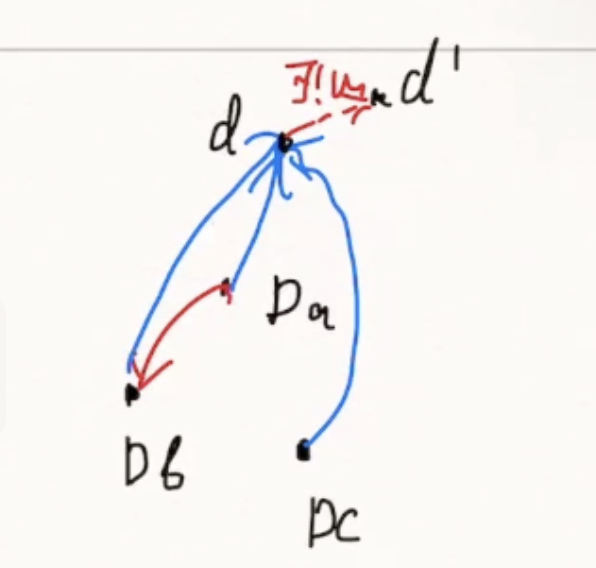 ∃! d'
d
Da
Db
Dc